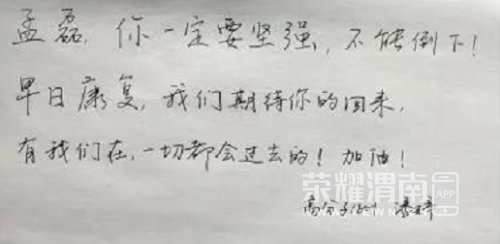 孟磊,你一定要坚强,不能倒下!
早日康复,我们期待你的回来,
有我们在,一切都会过去的!加油!
高分子1641
荣耀渭南 APP